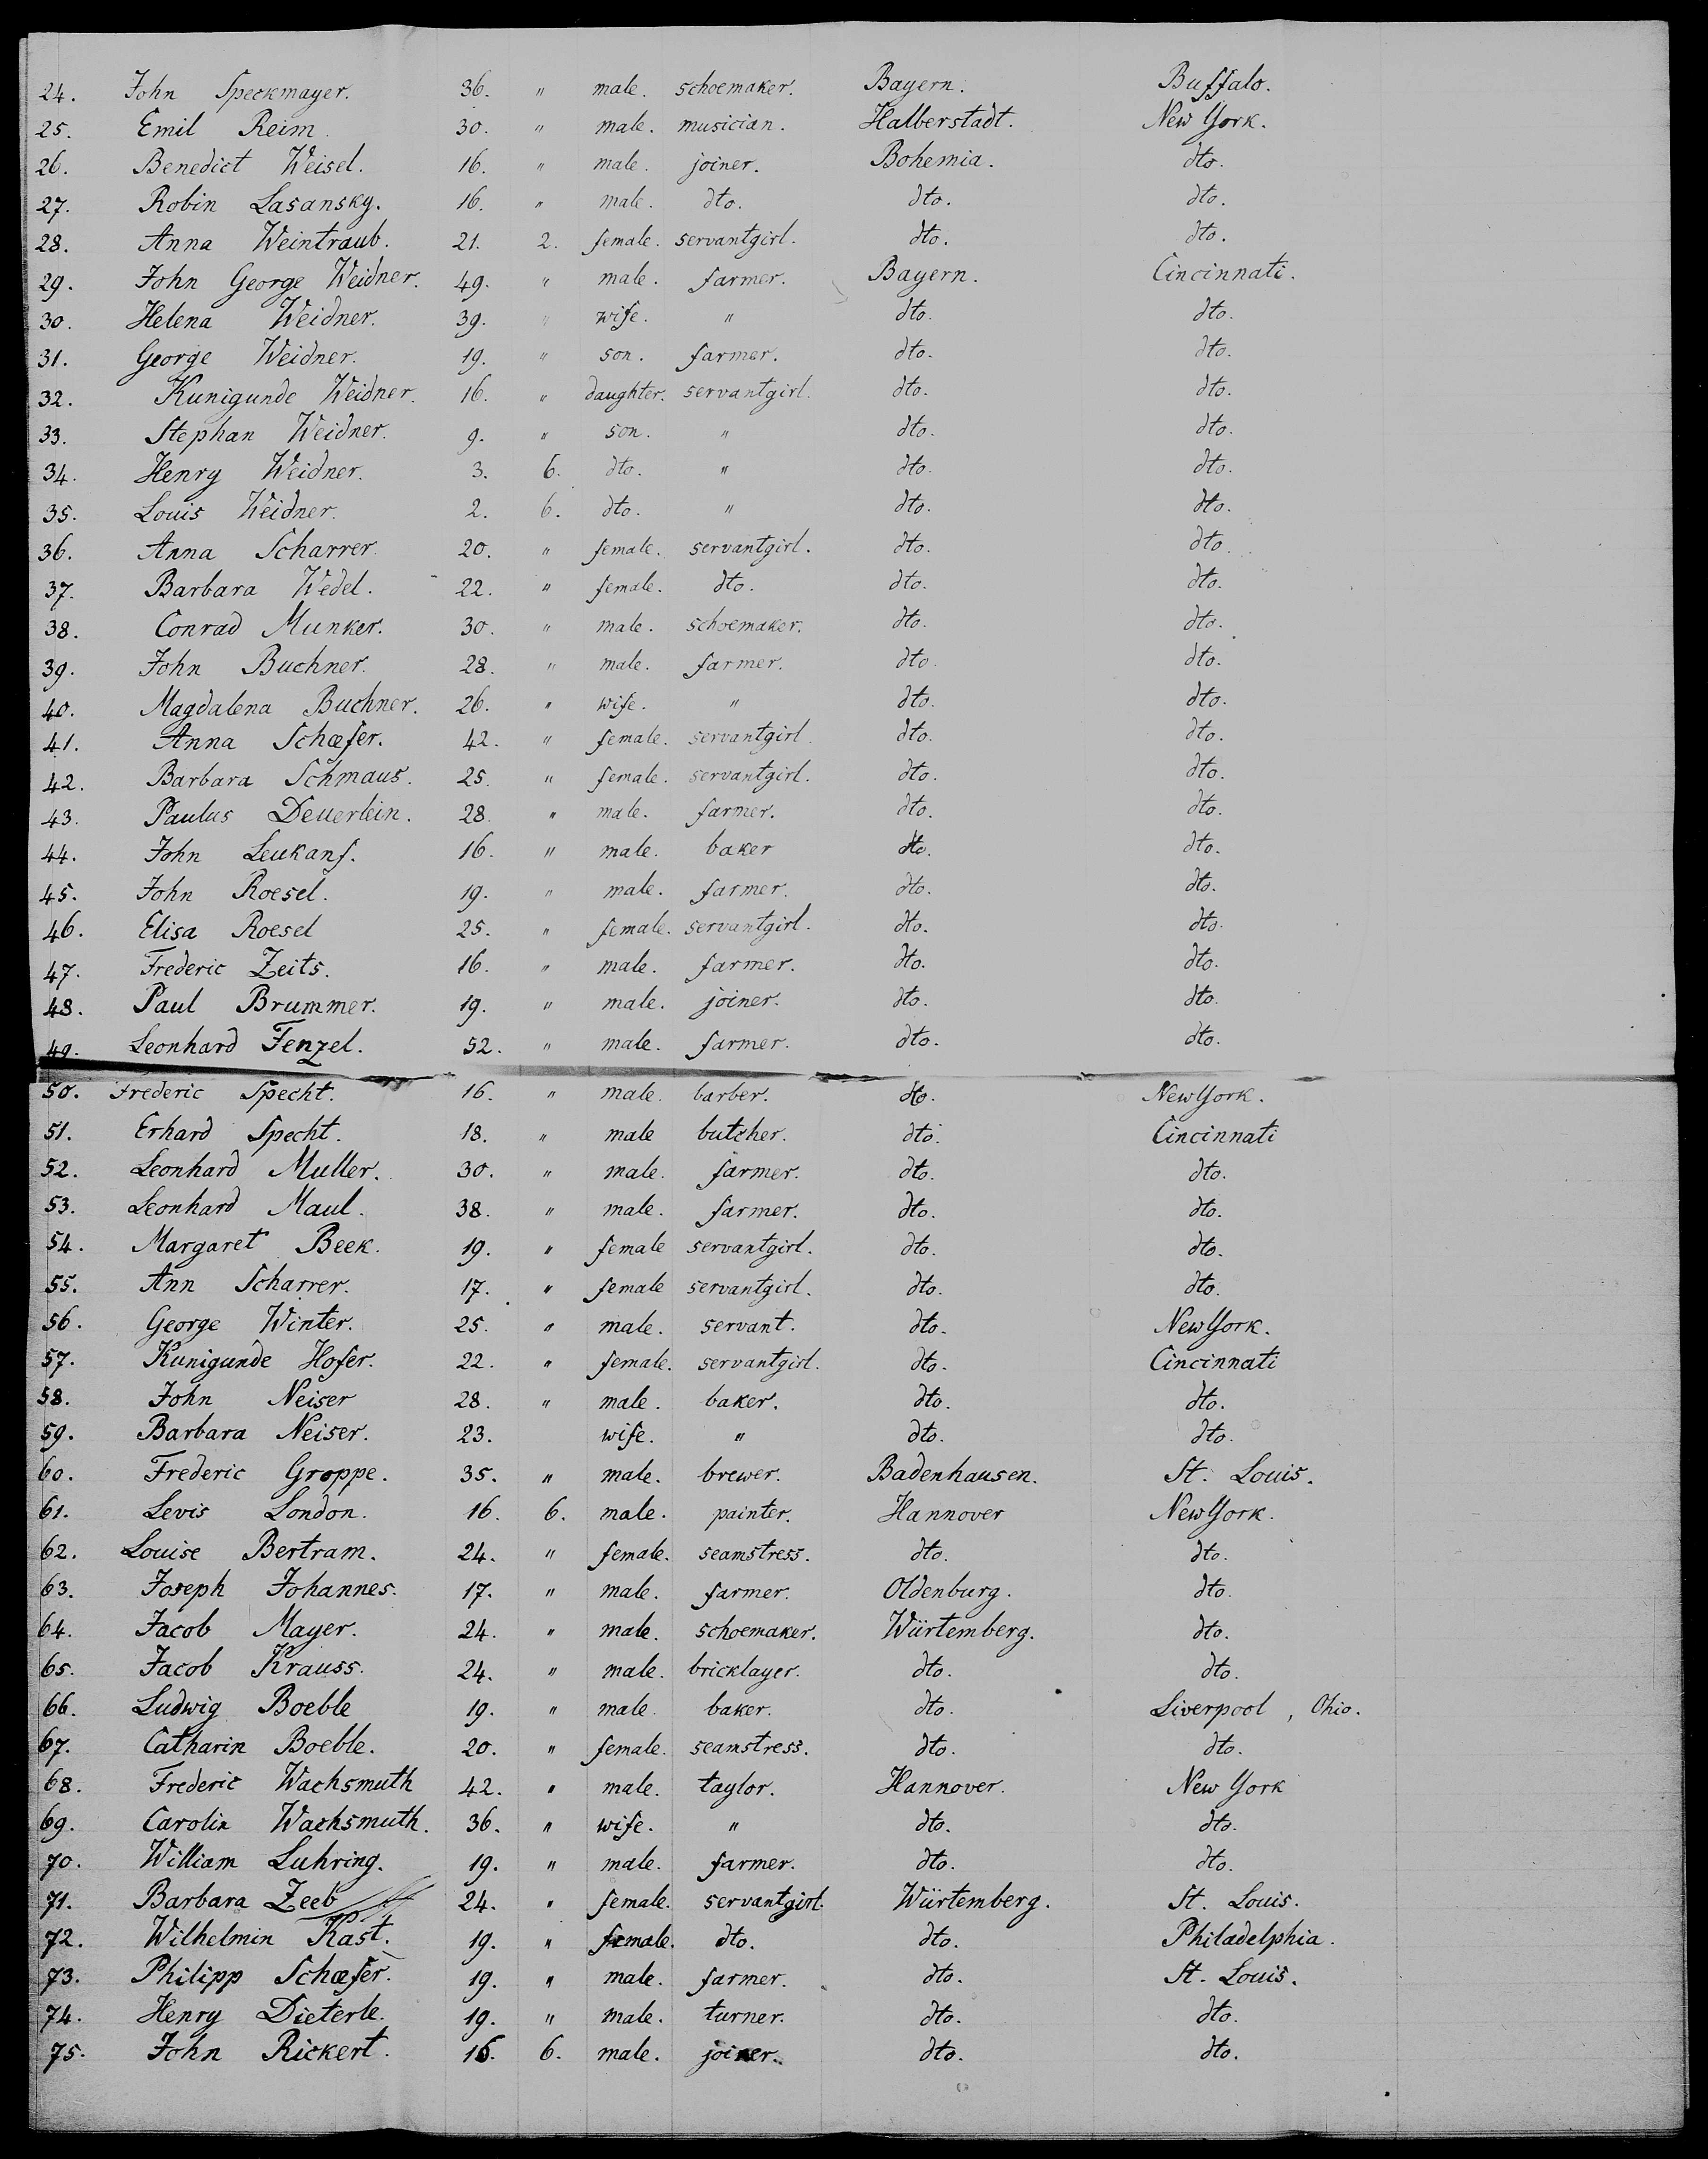 24. John Speckmayer. 36. " male. schoemaker. Bayern. Buffalo.
25. Emil Reim. 30. " male. musician. Halberstadt. New York.
26. Benedict Weisel. 16. " male. joiner. Bohemia. dto.
27. Robin Lasansky. 16. " male. dto. dto. dto.
28. Anna Weintraub. 21. 2. female. servantgirl. dto. dto.
29. John George Weidner. 49. " male. farmer. Bayern. Cincinnati.
30. Helena Weidner. 39. " wife. " dto. dto.
31. George Weidner. 19. " son. farmer. dto. dto.
32. Kunigunde Weidner. 16. " daughter. servantgirl. dto. dto.
33. Stephan Weidner. 9. " son. " dto. dto.
34. Henry Weidner. 3. 6. dto. " dto. dto.
35. Louis Weidner. 2. 6. dto. " dto. dto.
36. Anna Scharrer. 20. " female. servantgirl. dto. dto.
37. Barbara Wedel. 22. " female. dto. dto. dto.
38. Conrad Munker. 30. " male. schoemaker. dto. dto.
39. John Buchner. 28. " male. farmer. dto. dto.
40. Magdalena Buchner. 26. " wife. " dto. dto.
41. Anna Schæfer. 42. " female. servantgirl. dto. dto.
42. Barbara Schmaus. 25. " female. servantgirl. dto. dto.
43. Paulus Deuerlein. 28. " male. farmer. dto. dto.
44. John Leukanf. 16. " male. baker dto. dto.
45. John Roesel. 19. " male. farmer. dto. dto.
46. Elisa Roesel 25. " female. servantgirl. dto. dto.
47. Frederic Zeits. 16. " male. farmer. dto. dto.
48. Paul Brummer. 19. " male. joiner. dto. dto.
49. Leonhard Fenzel. 52. " male. farmer. dto. dto.
50. Frederic Specht. 16. " male. barber. dto. New York.
51. Erhard Specht. 18. " male butcher. dto. Cincinnati
52. Leonhard Muller. 30. " male. farmer. dto. dto.
53. Leonhard Maul. 38. " male. farmer. dto. dto.
54. Margaret Beek. 19. " female servantgirl. dto. dto.
55. Ann Scharrer. 17. " female servantgirl. dto. dto.
56. George Winter. 25. " male. servant. dto. New York.
57. Kunigunde Hofer. 22. " female. servantgirl. dto. Cincinnati
58. John Neiser 28. " male. baker. dto. dto.
59. Barbara Neiser. 23. wife. " dto. dto.
60. Frederic Groppe. 35. " male. brewer. Badenhausen. St. Louis.
61. Levis London. 16. 6. male. painter. Hannover New York.
62. Louise Bertram. 24. " female. seamstress. dto. dto.
63. Joseph Johannes. 17. " male. farmer. Oldenburg. dto.
64. Jacob Mayer. 24. " male. schoemaker. Würtemberg. dto.
65. Jacob Krauss. 24. " male. bricklayer. dto. dto.
66. Ludwig Boeble 19. " male. baker. dto. Liverpool, Ohio.
67. Catharin Boeble. 20. " female. seamstress. dto. dto.
68. Frederic Wachsmuth 42. " male. taylor. Hannover. New York
69. Carolin Wachsmuth. 36. " wife. " dto. dto.
70. William Luhring. 19. " male. farmer. dto. dto.
71. Barbara Zeeb 24. " female. servantgirl. Würtemberg. St. Louis.
72. Wilhelmin Kast. 19. " female. dto. dto. Philadelphia.
73. Philipp Schæfer. 19. " male. farmer. dto. St. Louis.
74. Henry Dieterle. 19. " male. turner. dto. dto.
75. John Rickert. 16. 6. male. joiner. dto. dto.